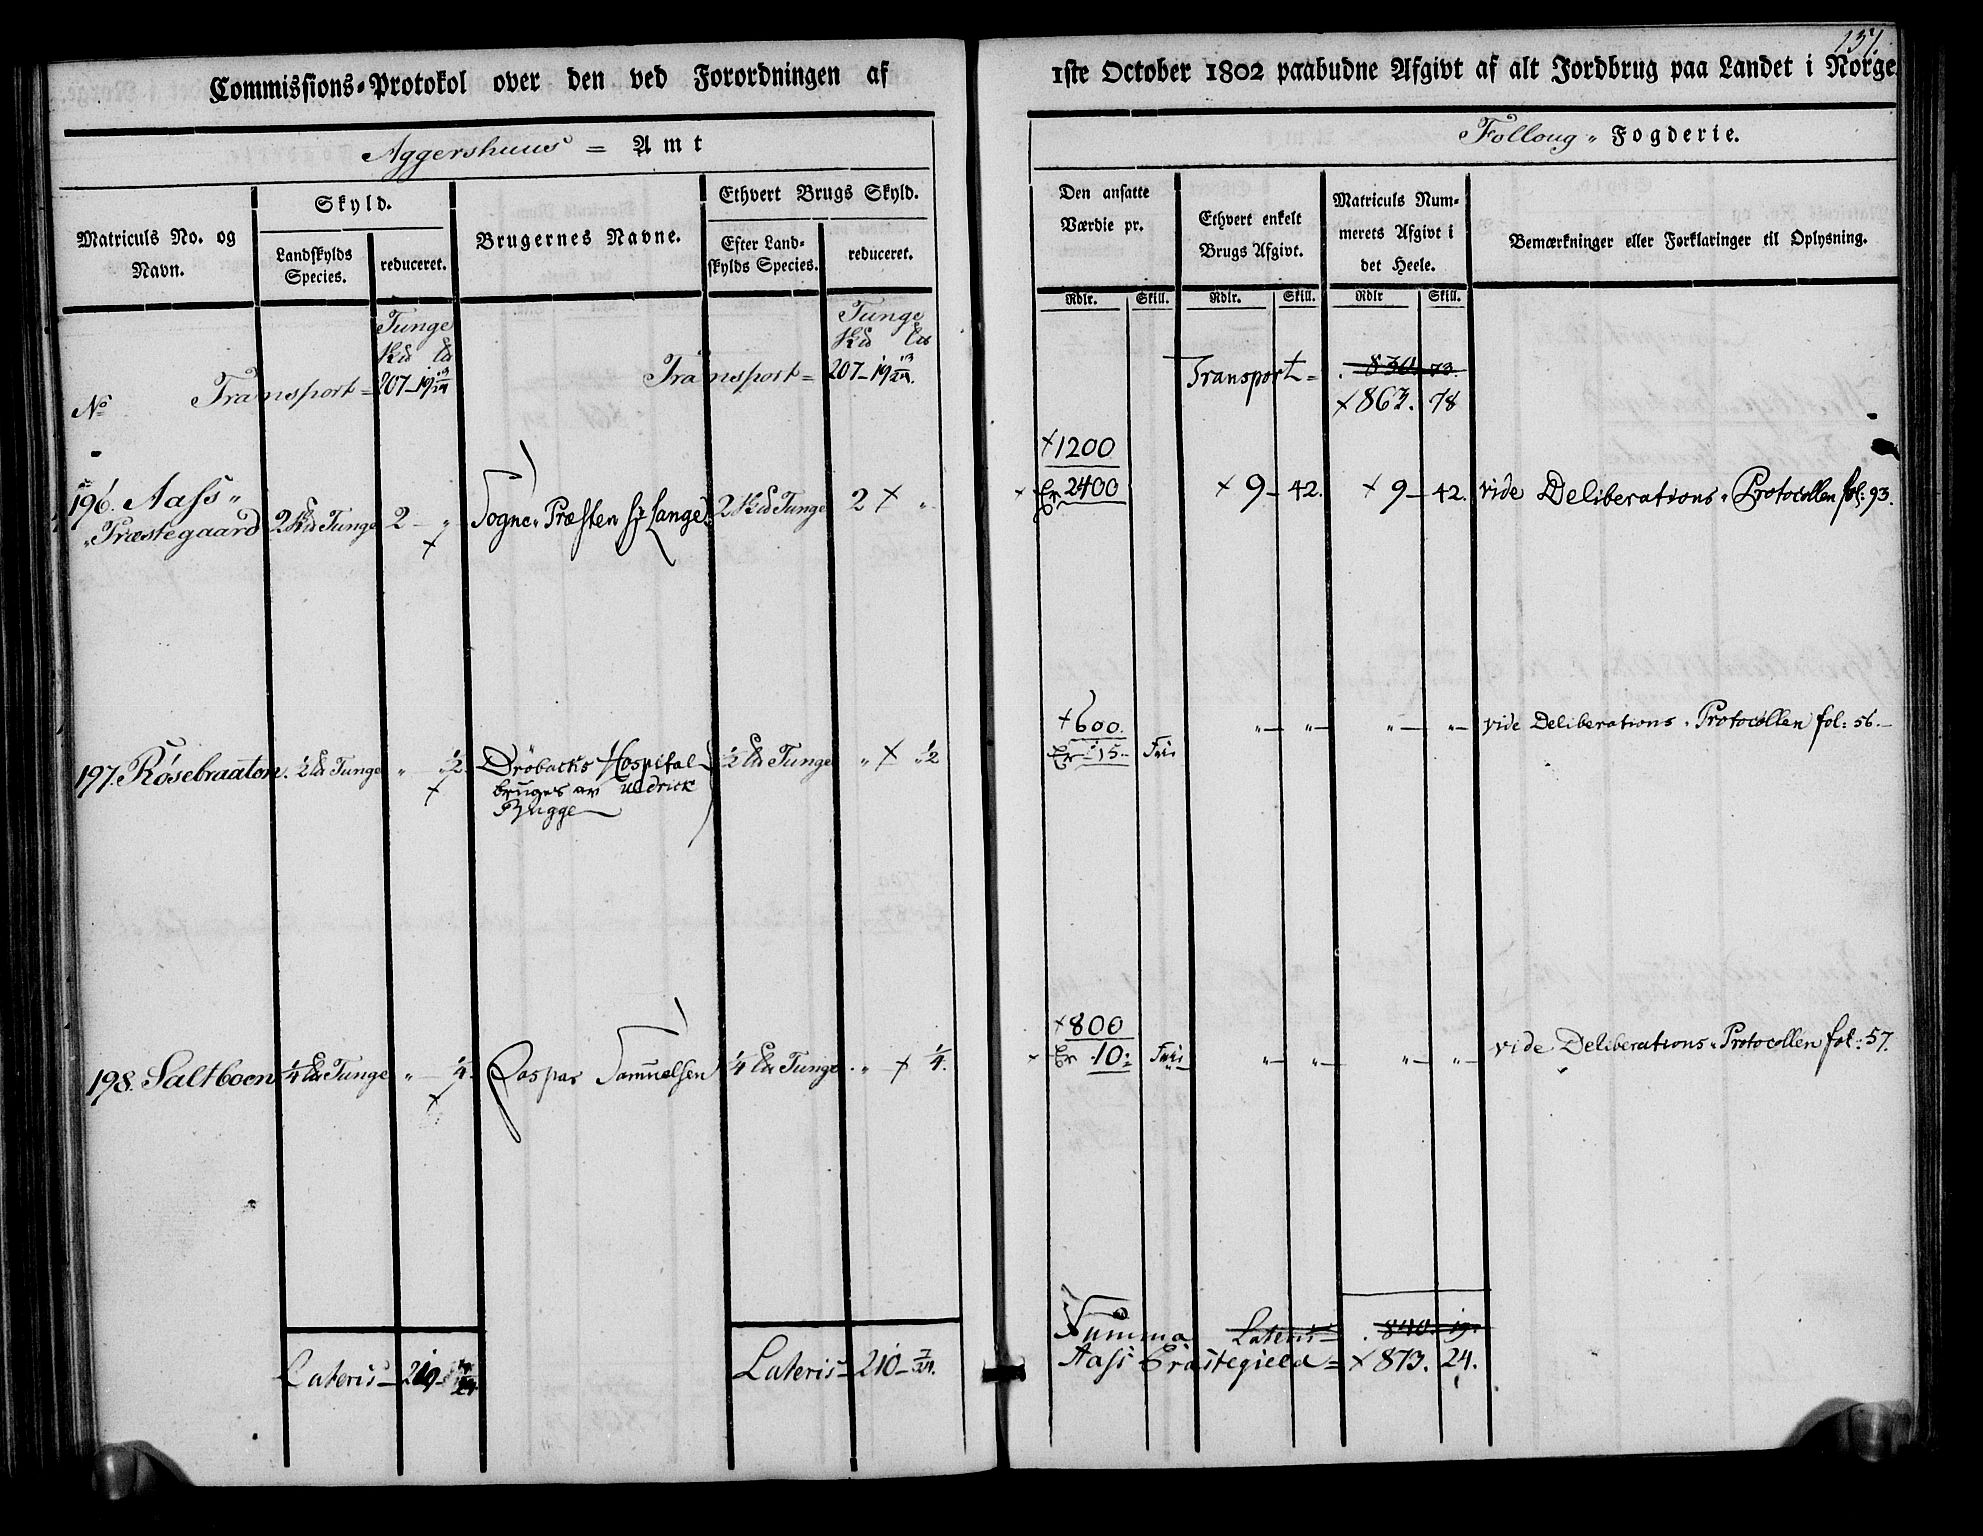 137.
Commissions-Protokol over den ved Forordningen af 1ste October 1802 paabudne Afgivt af alt Jordbrug paa Landet i Norge
Aggershuus = Amt
Folloug „ Fogderie.
Matriculs No. og Navn.
Skyld.
Landskylds Species.
reduceret.
Brugernes Navne.
Ethvert Brugs Skyld.
Efter Landskylds Species.
reduceret.
Den ansatte Værdie pr.
Ethvert enkelt Brugs Afgivt.
Matriculs Nummerets Afgivt i det Heele.
Bemærkninger eller Forklaringer til Oplysning.
Rdlr. Skill. Rdlr. Skill. Rdlr Skill.
Tunge
Tunge
No
Transport = 207 - 19
Transport = 207 - 19
Transport = 830. 73.
+ 863. 78
+ 1200
196. Aass „ 2 Tunge 2 - „ Sogne„Præsten Hr Lange. 2 Tunge 2 + „ Er 2400 + 9 - 42. + 9 - 42. vide Deliberations„Protocollen fol: 93.
„Præstegaard
+ 600.
197. Røsebraaton. ½ Tunge „ - ½ Dröbacks Hospital ½ Tunge „ + ½ Er 15 - Frie „ - „ - „ - „ - vide Deliberations„Protocollen fol: 56. -
bruges av Uldrick
Bugge
+ 800
198. Saltboen ¼ Tunge „ - ¼. Caspar Samuelsen ¼ Tunge „ + ¼. Er 10: Frie „ - „ - „ - „ - vide Deliberations„Protocollen fol: 57.
Summa Lateris - 840. 19.
Lateris - 210 -
Lateris - 210 - 7/24.
Aass Præstegield = + 873. 24.